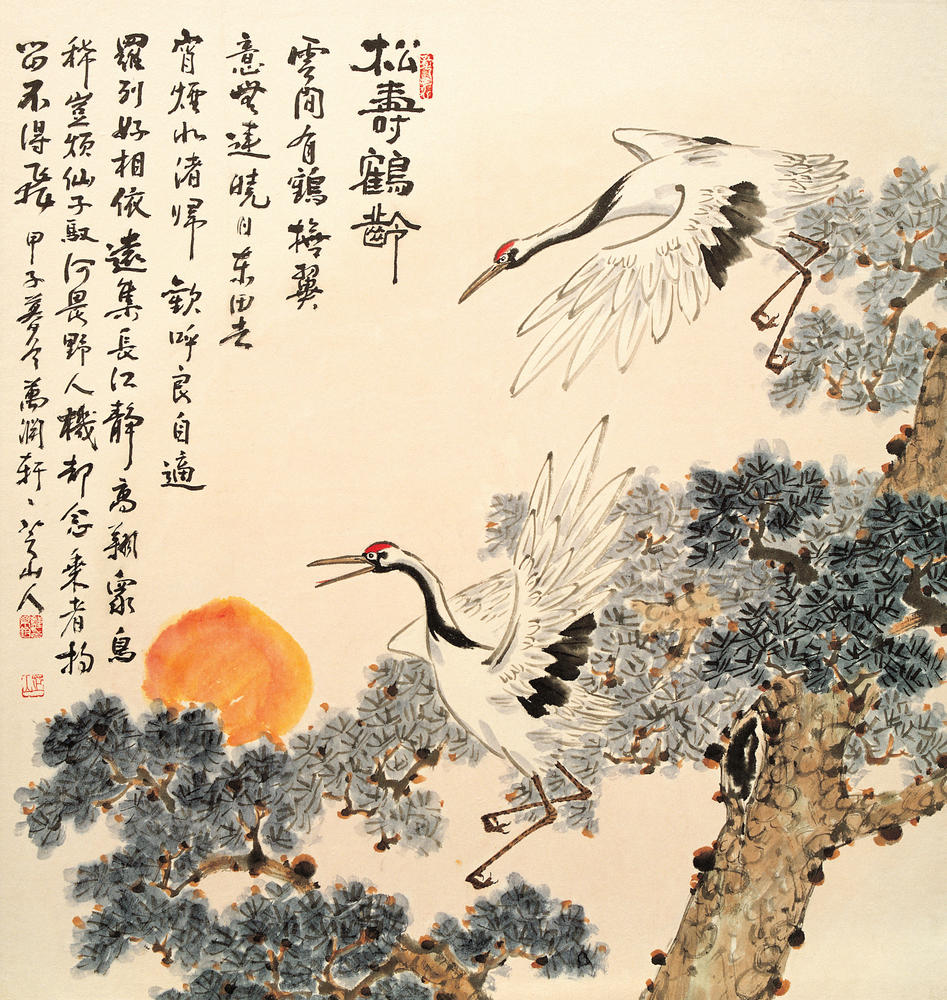 松壽鶴齡
雲間有鶴撫翼
意無違曉日東田去
宵煙北渚歸 歡呼良自適
羅列好相依遠集長江靜高翔眾鳥
稀豈煩仙子馭何畏野人機却念乘者拘
留不得飛 甲子冬萬澗軒山人